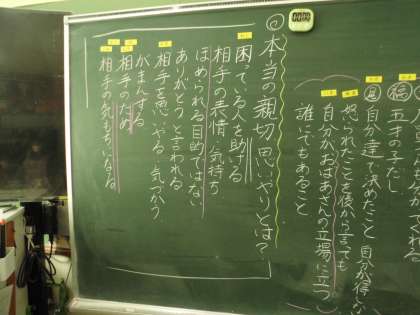 五才の子だし
自分達で決めたこと 自分が得
怒られたことを後から言っても
自分がおばあさんの立場に立つ
誰にでもあること
本当の親切、思いやりとは?
困っている人を助ける
相手の表情、気持ち
ほめられる目的ではない
ありがとうと言われる
相手を思いやる、気づかう
がまんする
相手のため
相手の気もちになる